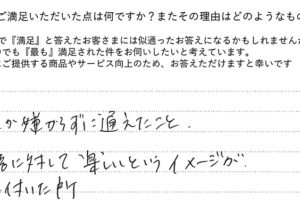 ご満足いただいた点は何ですか？またその理由はどのようなもの
で『満足』と答えたお客さまには似通ったお答えになるかもしれませんが
でも『最も』満足された件をお伺いしたいと考えています。
ご提供する商品やサービス向上のため、お答えいただけますと幸いです
が嫌がらずに通えたこと.
に対して楽しいというイメージが
付いた所